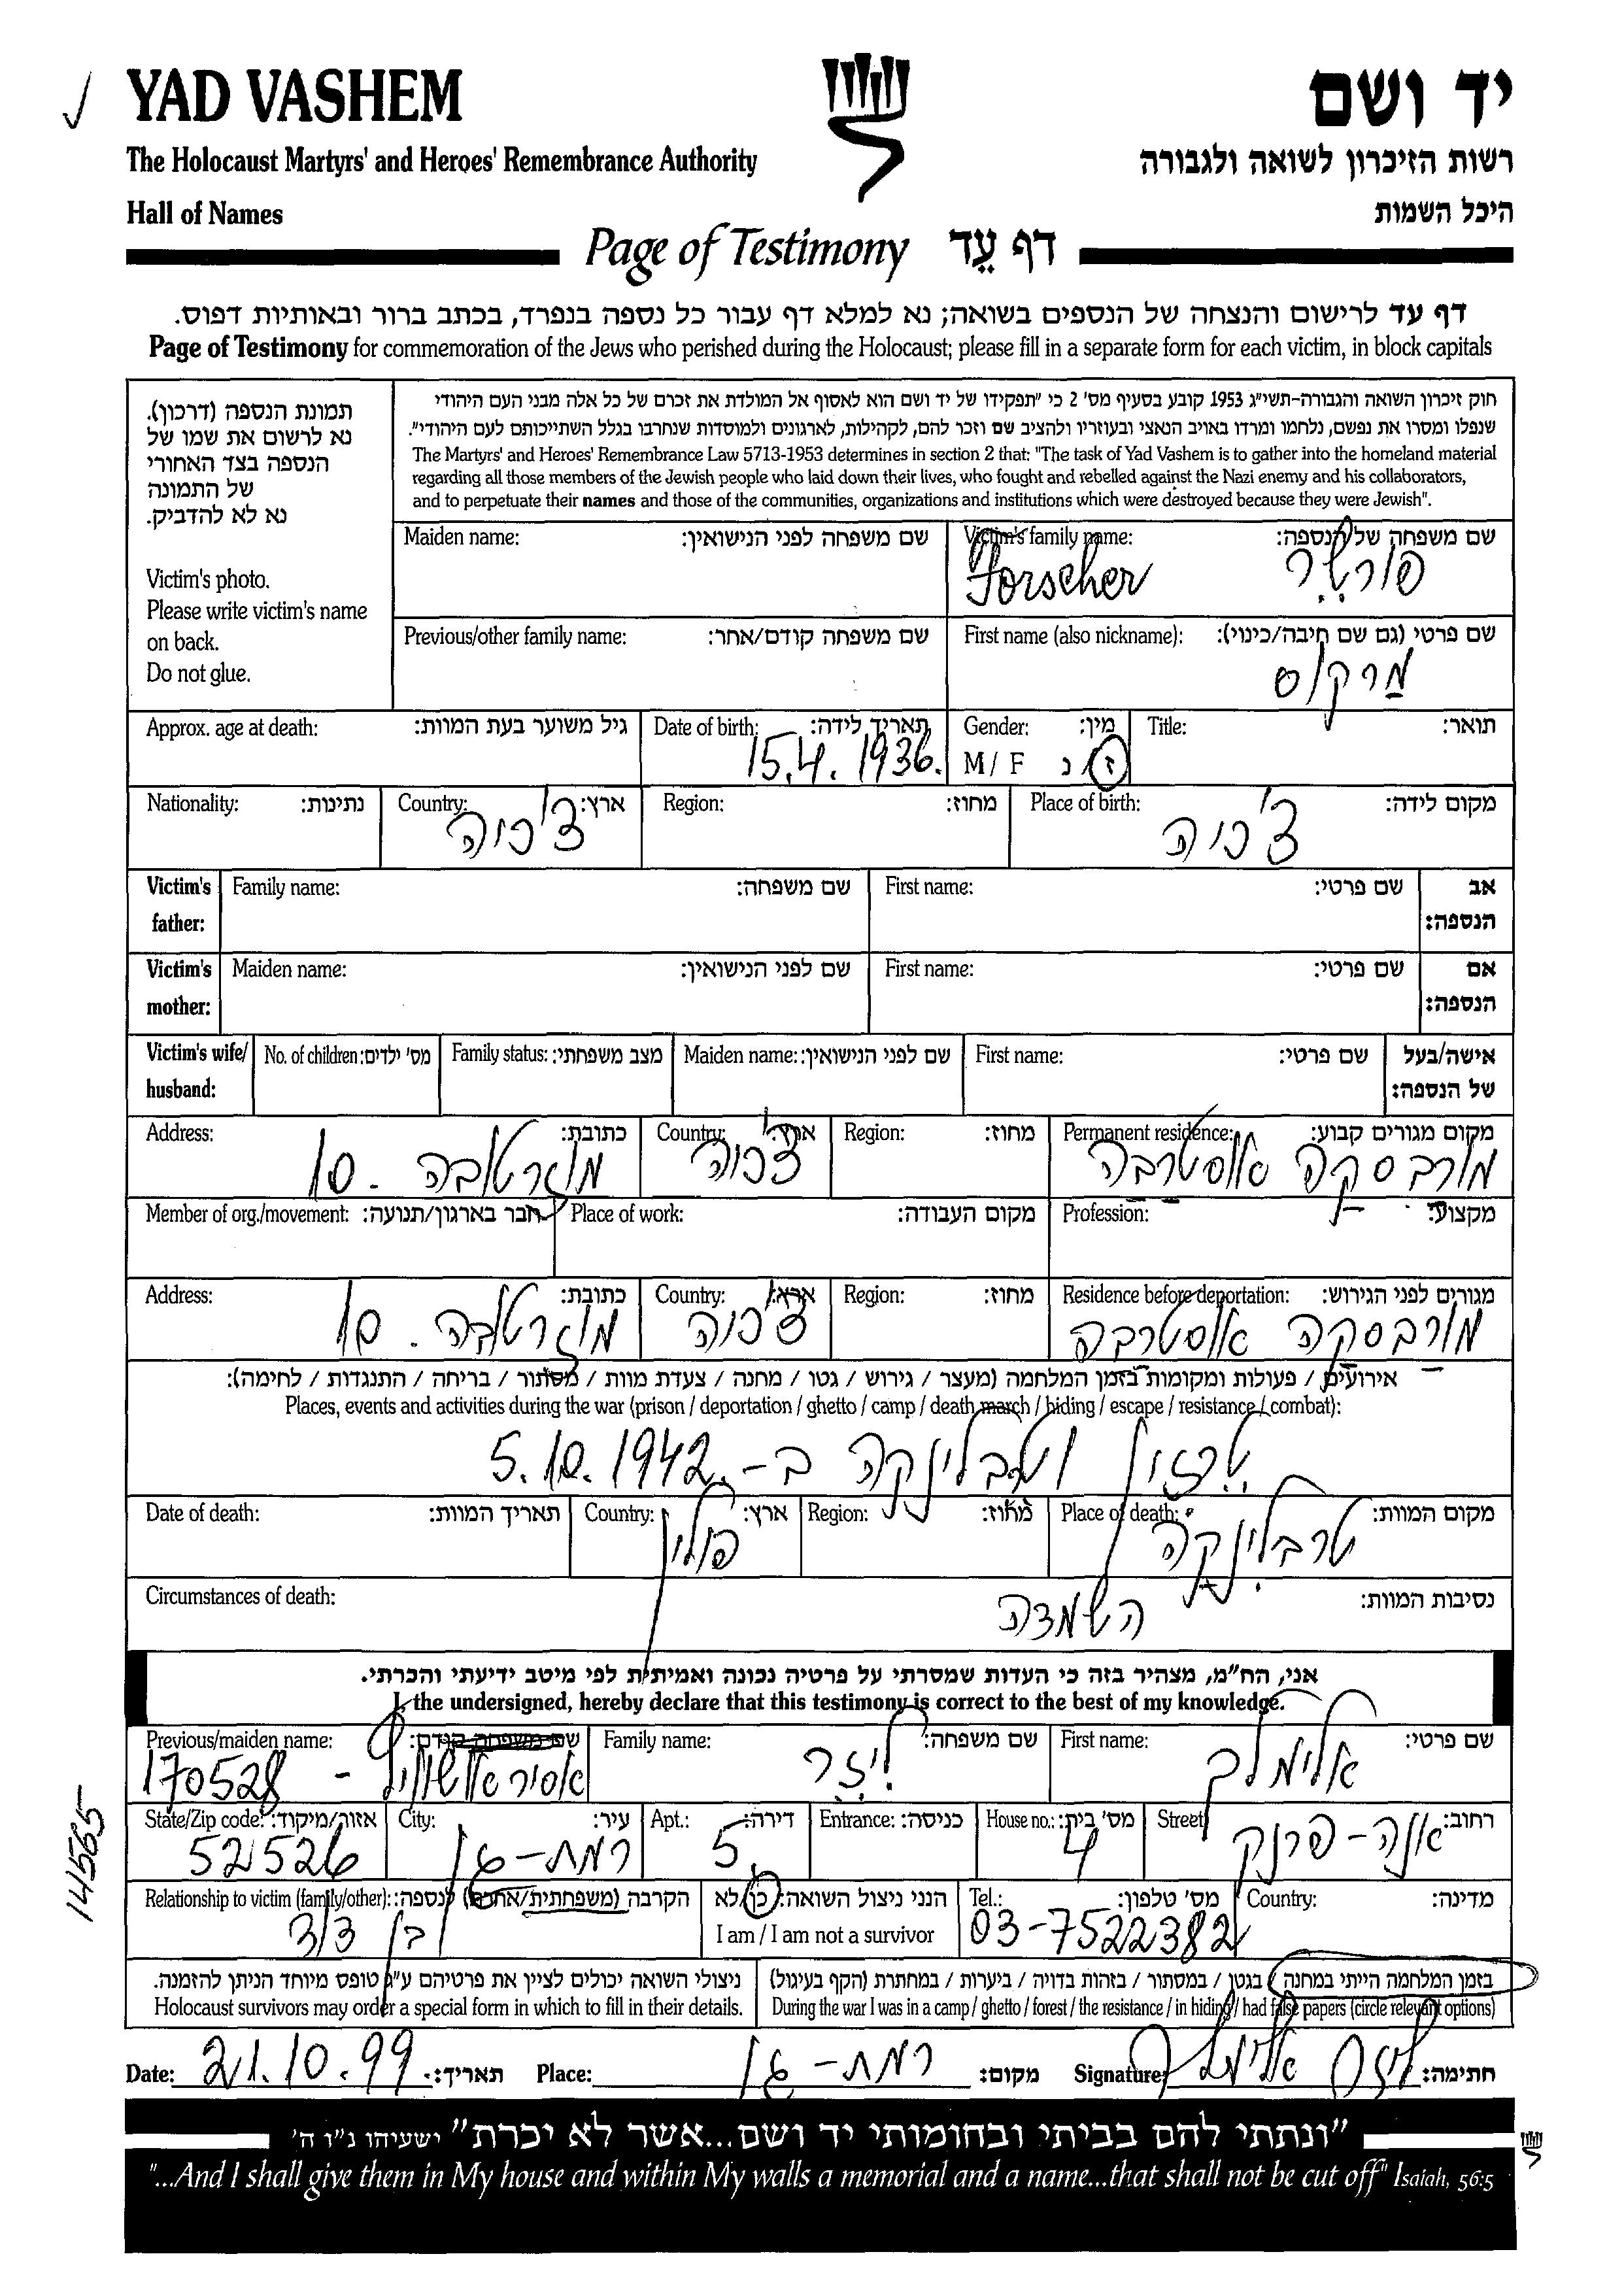 YAD VASHEM
יד ושם
The Holocaust Martyrs' and Heroes' Remembrance Authority
רשות הזיכרון לשואה ולגבורה
Hall of Names
היכל השמות
Page of Testimony דף עֵד
דף עד לרישום והנצחה של הנספים בשואה; נא למלא דף עבור כל נספה בנפרד, בכתב ברור ובאותיות דפוס.
Page of Testimony for commemoration of the Jews who perished during the Holocaust; please fill in a separate form for each victim, in block capitals
תמונת הנספה (דרכון).
נא לרשום את שמו של
הנספה בצד האחורי
של התמונה
נא לא להדביק.
Victim's photo.
Please write victim's name
on back.
Do not glue.
חוק זיכרון השואה והגבורה-תשי"ג 1953 קובע בסעיף מס' 2 כי "תפקידו של יד ושם הוא לאסוף אל המולדת את זכרם של כל אלה מבני העם היהודי
שנפלו ומסרו את נפשם, נלחמו ומרדו באויב הנאצי ובעוזריו ולהציב שם וזכר להם, לקהילות, לארגונים ולמוסדות שנחרבו בגלל השתייכותם לעם היהודי".
The Martyrs' and Heroes' Remembrance Law 5713-1953 determines in section 2 that: "The task of Yad Vashem is to gather into the homeland material
regarding all those members of the Jewish people who laid down their lives, who fought and rebelled against the Nazi enemy and his collaborators,
and to perpetuate their names and those of the communities, organizations and institutions which were destroyed because they were Jewish".
Maiden name: שם משפחה לפני הנישואין: Victim's family name: שם משפחה של הנספה:
Forscher פורשר
Previous/other family name: שם משפחה קודם/אחר: First name (also nickname): שם פרטי (גם שם חיבה/כינוי):
מרקוס
Approx. age at death: גיל משוער בעת המוות: Date of birth: תאריך לידה: Gender: מין: Title: תואר:
15.4. 1936. M / F ז / נ
Nationality: נתינות: Country: ארץ: Region: מחוז: Place of birth: מקום לידה:
צ'כיה צ'כיה
Victim's father: Family name: שם משפחה: First name: שם פרטי: אב הנספה:
Victim's mother: Maiden name: שם לפני הנישואין: First name: שם פרטי: אם הנספה:
Victim's wife/ husband: No. of children: מס' ילדים: Family status: מצב משפחתי: Maiden name: שם לפני הנישואין: First name: שם פרטי: אישה/בעל של הנספה:
Address: כתובת: Country: ארץ: Region: מחוז: Permanent residence: מקום מגורים קבוע:
צ'כיה מורבסקה אוסטרבה
Member of org./movement: חבר בארגון/תנועה: Place of work: מקום העבודה: Profession: מקצוע:
Address: כתובת: Country: ארץ: Region: מחוז: Residence before deportation: מגורים לפני הגירוש:
צ'כיה מורבסקה אוסטרבה
אירועים / פעולות ומקומות בזמן המלחמה (מעצר / גירוש / גטו / מחנה / צעדת מוות / מסתור / בריחה / התנגדות / לחימה):
Places, events and activities during the war (prison / deportation / ghetto / camp / death march / hiding / escape / resistance / combat):
טרזין וטבלינקה ב- 5.10.1942.
Date of death: תאריך המוות: Country: ארץ: Region: מחוז: Place of death: מקום המוות:
פולין טרבלינקה
Circumstances of death: נסיבות המוות:
השמדה
אני, הח"מ, מצהיר בזה כי העדות שמסרתי על פרטיה נכונה ואמיתית לפי מיטב ידיעתי והכרתי.
I, the undersigned, hereby declare that this testimony is correct to the best of my knowledge.
Previous/maiden name: שם משפחה קודם: Family name: שם משפחה: First name: שם פרטי:
170528 - אסיר אושוויץ ליזר אלימלך
State/Zip code: אזור/מיקוד: City: עיר: Apt.: דירה: Entrance: כניסה: House no.: מס' בית: Street רחוב:
52526 רמת-גן 5 4 אנה-פרנק
Relationship to victim (family/other): הקרבה (משפחתית/אחרת) לנספה: הנני ניצול השואה: כן/לא Tel.: מס' טלפון: Country: מדינה:
בן דוד I am / I am not a survivor 03-7522382
ניצולי השואה יכולים לציין את פרטיהם ע"ג טופס מיוחד הניתן להזמנה. בזמן המלחמה הייתי במחנה / בגטו / במסתור / בזהות בדויה / ביערות / במחתרת (הקף בעיגול)
Holocaust survivors may order a special form in which to fill in their details. During the war I was in a camp / ghetto / forest / the resistance / in hiding / had false papers (circle relevant options)
Date: 21.10.99 תאריך: Place: רמת-גן מקום: Signature: ליזר אלימלך חתימה:
14565
"ונתתי להם בביתי ובחומותי יד ושם...אשר לא יכרת" ישעיהו נ"ו ה'
"...And I shall give them in My house and within My walls a memorial and a name...that shall not be cut off" Isaiah, 56:5